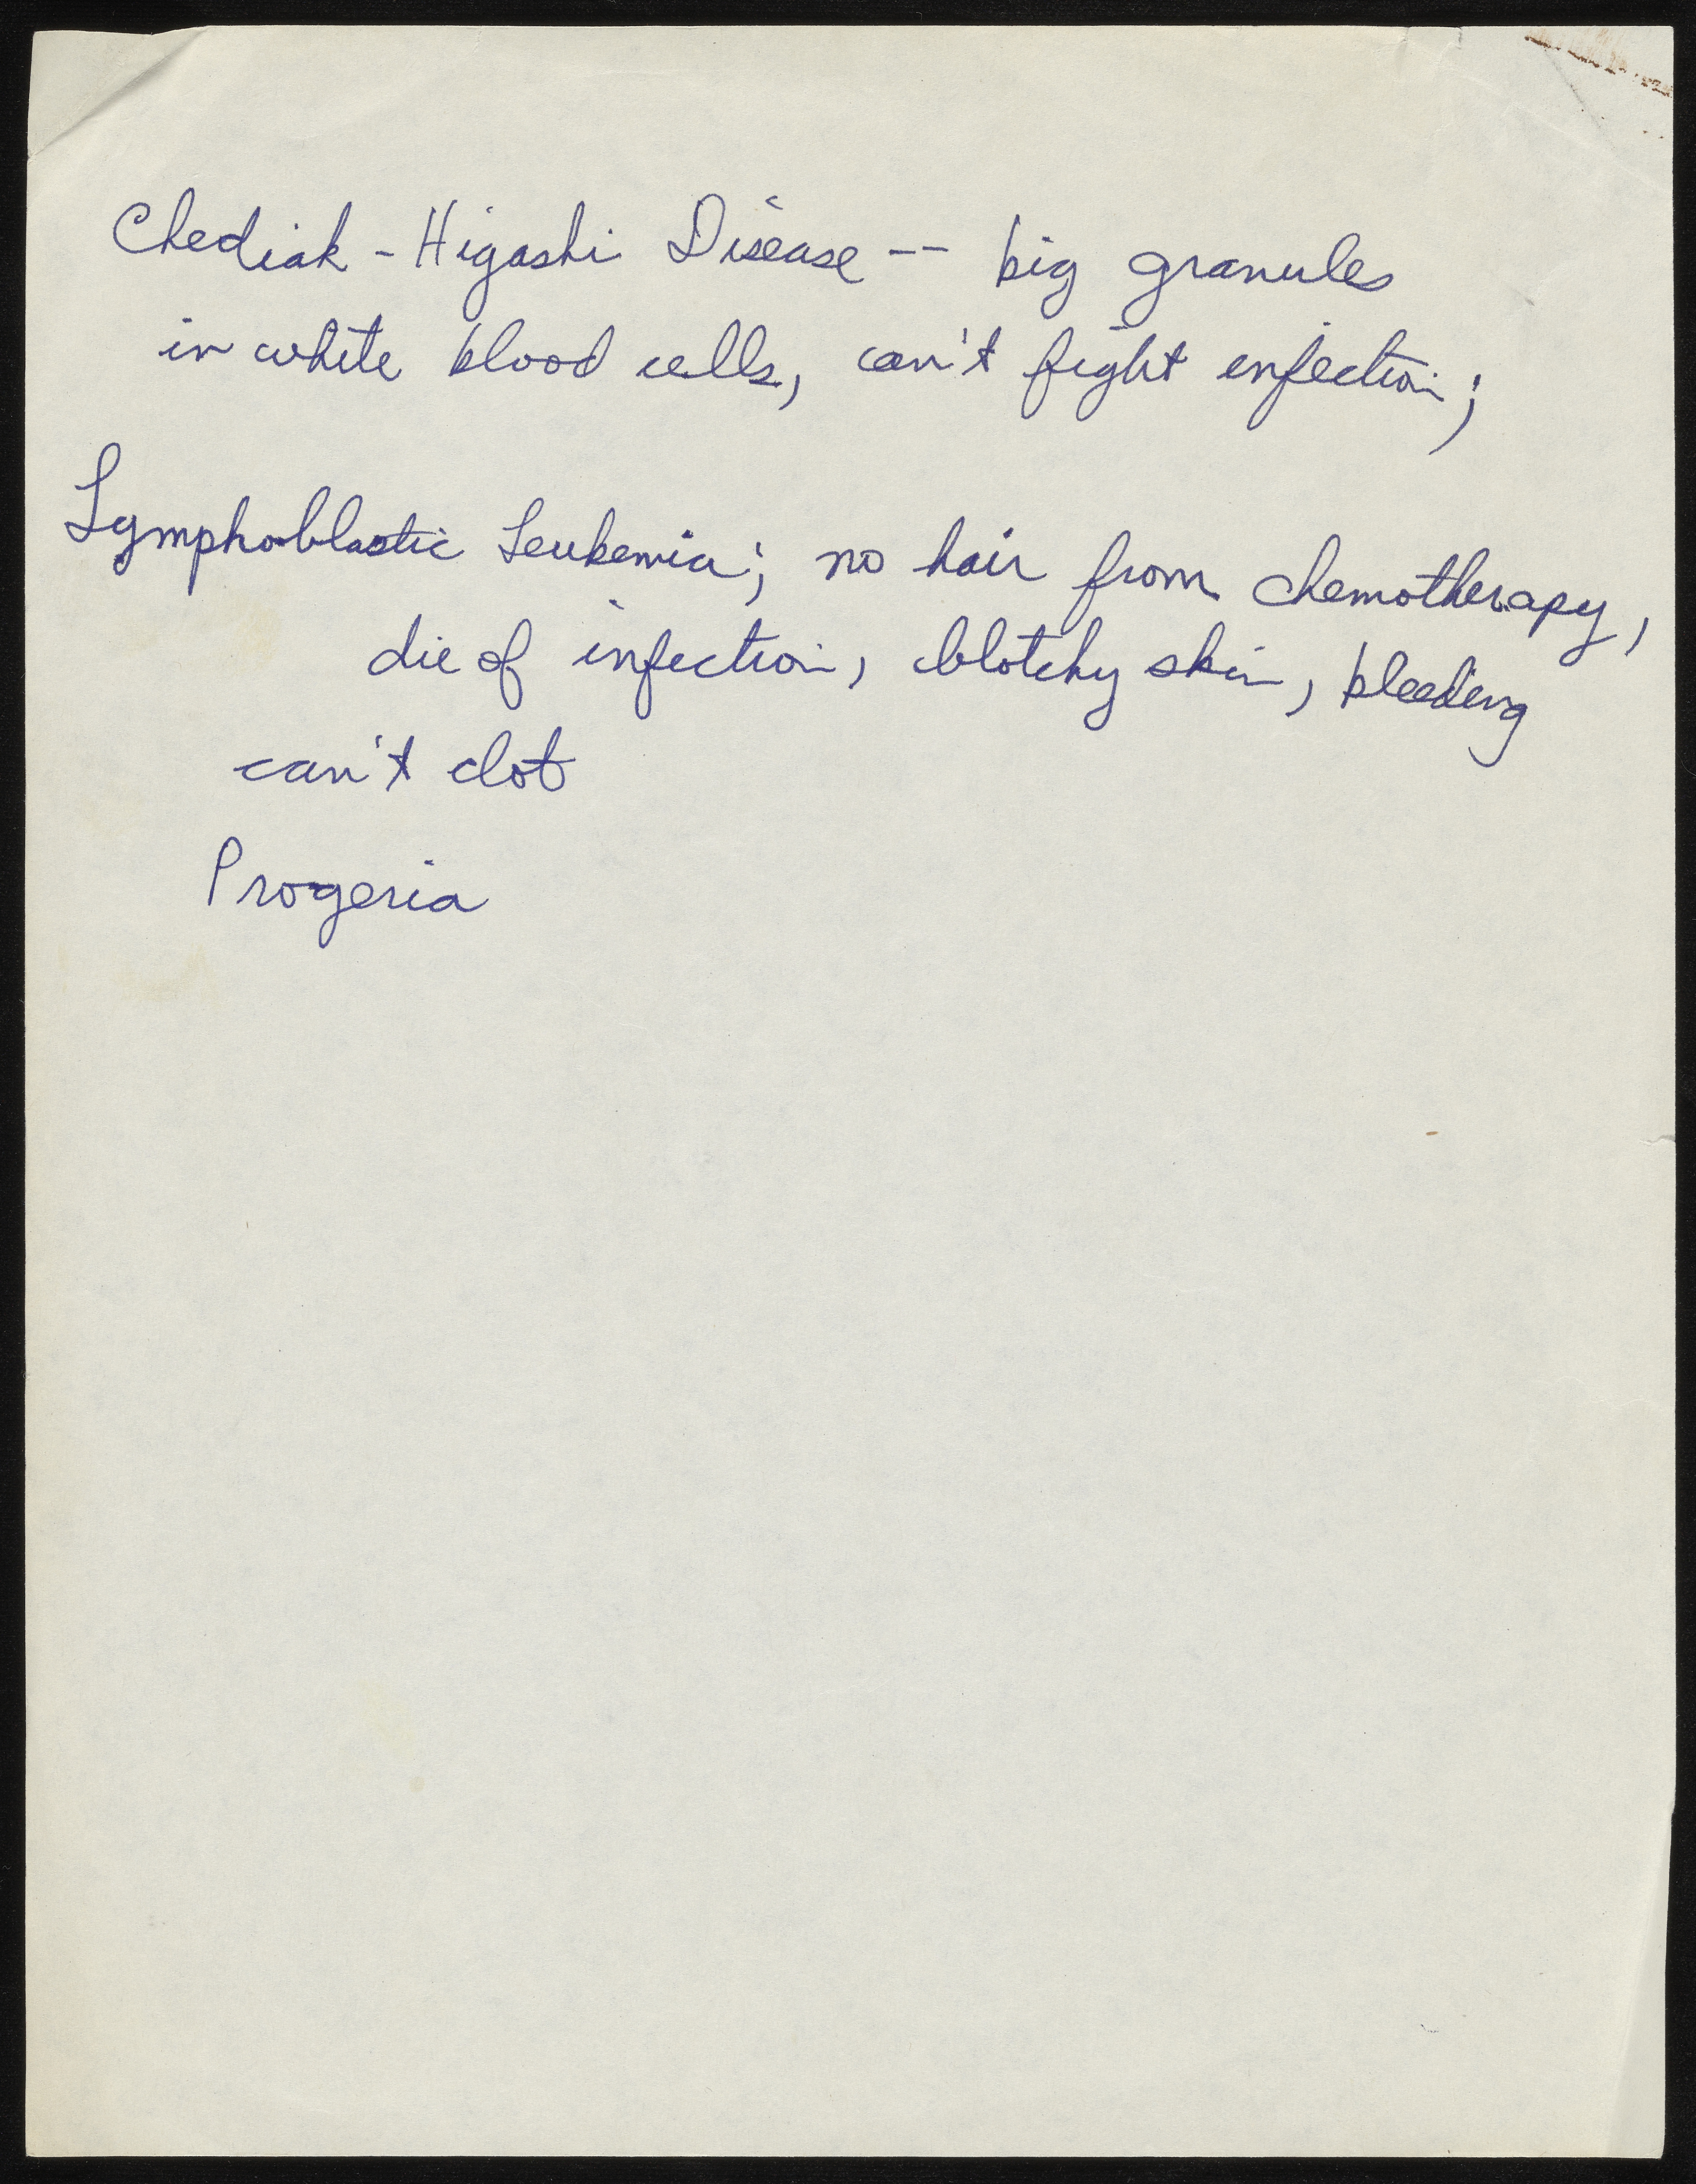 Chediak - Higashi Disease -- big granules
in white blood cells, can't fight infection;
Lymphoblastic Leukemia; no hair from chemotherapy,
die of infection, blotchy skin, bleeding
can't clot
Progeria